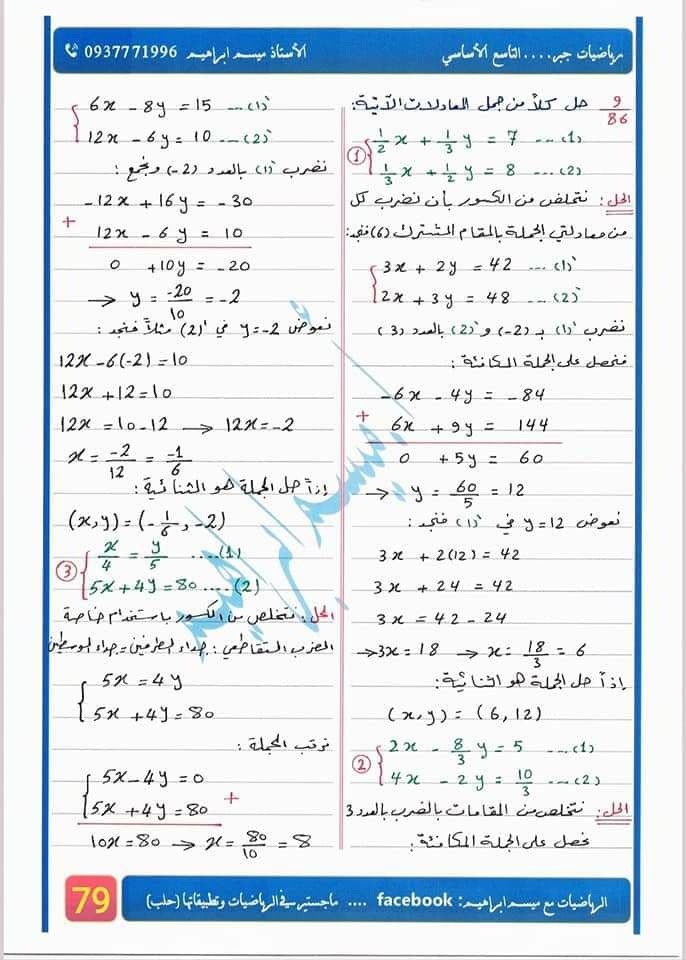 رياضيات جبر....التاسع الأساسي
الأستاذ ميسم ابراهيم 0937771996
9/86 حل كلاً من جمل المعادلات الآتية:
① { 1/2 x + 1/3 y = 7 ... (1)
1/3 x + 1/2 y = 8 ... (2)
الحل: نتخلص من الكسور بأن نضرب كل
من معادلتي الجملة بالمقام المشترك (6) فنجد:
{ 3x + 2y = 42 ... (1)'
2x + 3y = 48 ... (2)'
نضرب (1)' بـ (-2) و (2)' بالعدد (3)
فنحصل على الجملة المكافئة:
-6x - 4y = -84
+
6x + 9y = 144
0 + 5y = 60
→ y = 60/5 = 12
نعوض y = 12 في (1)' فنجد:
3x + 2(12) = 42
3x + 24 = 42
3x = 42 - 24
→ 3x = 18 → x = 18/3 = 6
إذاً حل الجملة هو الثنائية:
(x,y) = (6,12)
② { 2x - 8/3 y = 5 ... (1)
4x - 2y = 10/3 ... (2)
الحل: نتخلص من المقامات بالضرب بالعدد 3
نحصل على الجملة المكافئة:
{ 6x - 8y = 15 ... (1)'
12x - 6y = 10 ... (2)'
نضرب (1)' بالعدد (-2) ونجمع:
-12x + 16y = -30
+
12x - 6y = 10
0 + 10y = -20
→ y = -20/10 = -2
نعوض y = -2 في (2)' مثلاً فنجد:
12x - 6(-2) = 10
12x + 12 = 10
12x = 10 - 12 → 12x = -2
x = -2/12 = -1/6
إذاً حل الجملة هو الثنائية:
(x,y) = (-1/6, -2)
③ { x/4 = y/5 ....(1)
5x + 4y = 80 .....(2)
الحل: نتخلص من الكسور باستخدام خاصة
الضرب التقاطعي: جداء الطرفين = جداء الوسطين
{ 5x = 4y
5x + 4y = 80
نرتب الجملة:
{ 5x - 4y = 0
+
5x + 4y = 80
10x = 80 → x = 80/10 = 8
أ. ميسم ابراهيم
الرياضيات مع ميسم ابراهيم: facebook .... ماجستير في الرياضيات وتطبيقاتها (حلب)
79